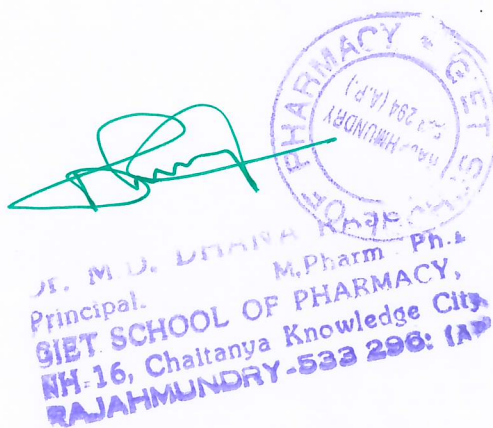 PHARMACY * GIET
OF
RAJAHMUNDRY
294 (A.P.)
M.D. DHANA
M.Pharm Ph.
Principal.
GIET SCHOOL OF PHARMACY,
NH-16, Chaitanya Knowledge City
RAJAHMUNDRY-533 296: (AP